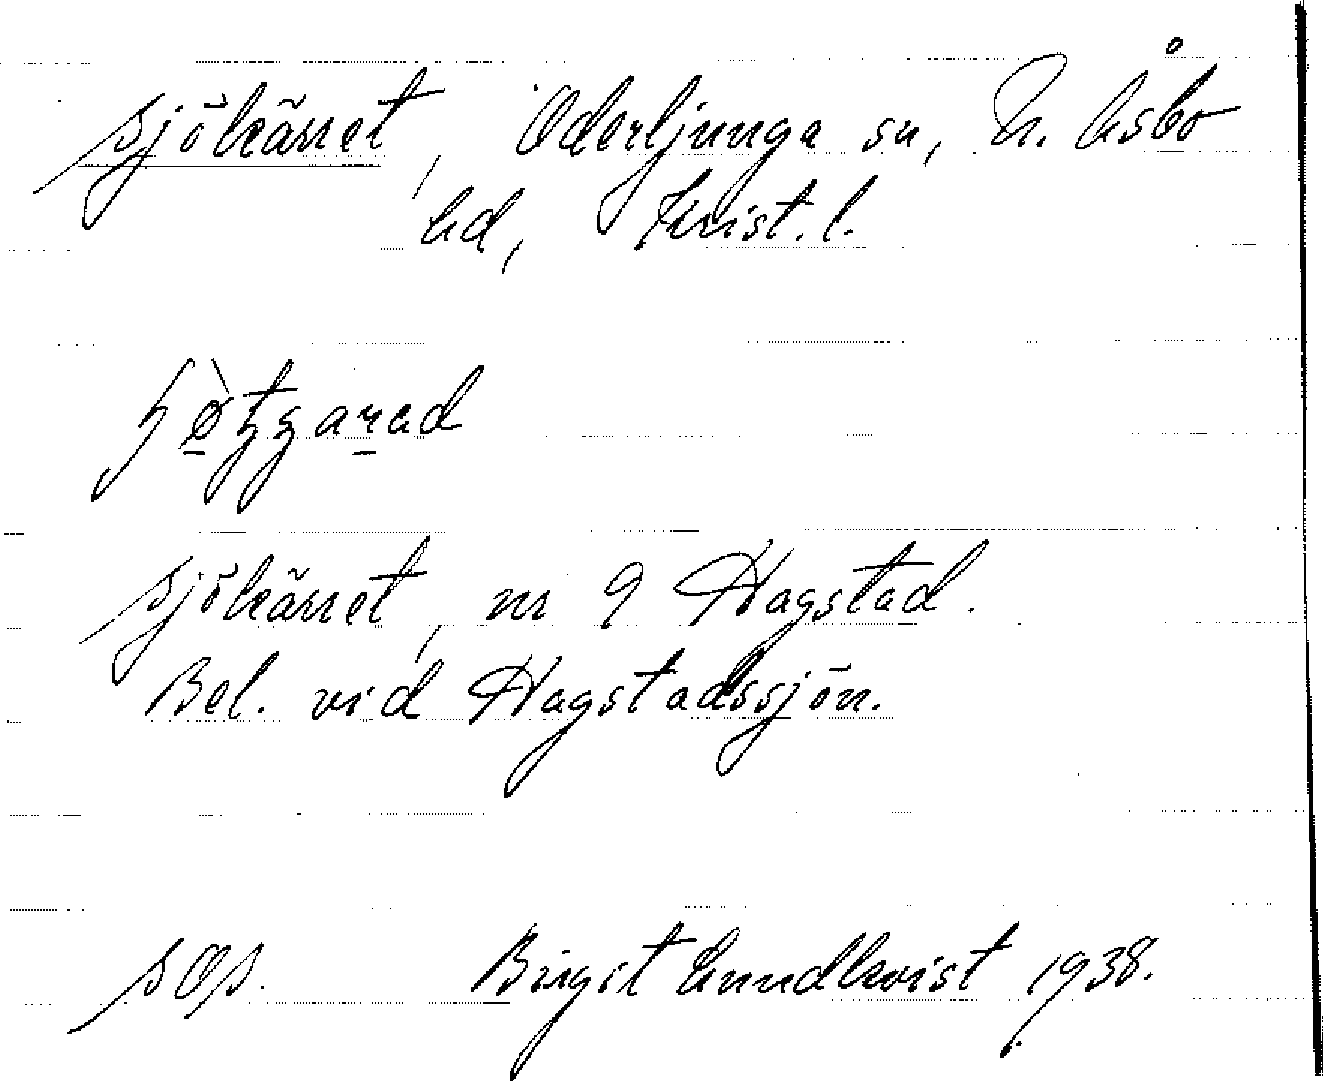 sjökärret, Oderljunga sn, N. Åsbo
hd, Krist. l.
sjökärret, nr 9 Hagstad.
Bel. vid Hagstadssjön.
sOp. Birgit Lundkvist 1938.